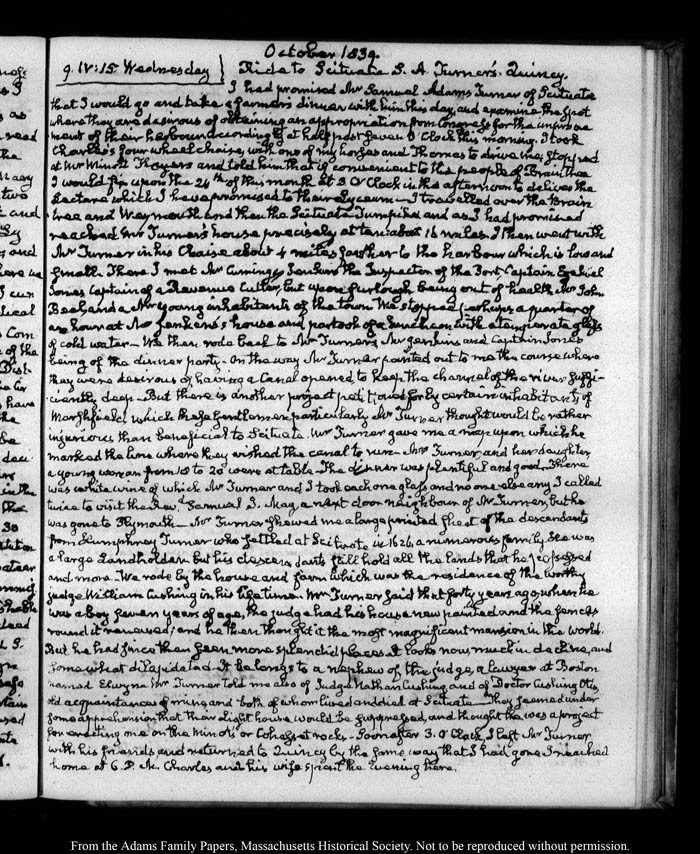 October 1839.
9. IV:15. Wednesday } Ride to Scituate S. A. Turner's. Quincy.
I had promised Mr Samuel Adams Turner of Scituate
that I would go and take a farmer's dinner with him this day, and examine the spot
where they are desirous of obtaining an appropriation from Congress for the improve
ment of their harbour accordingly at half past seven O'Clock this morning. I took
Charles's four wheel chaise, with one of my horses and Thomas to drive me; stopped
at Mr Minott Thayer's and told him that if convenient to the people of Braintree
I would fix upon the 24th of this month at 3. O'Clock in the afternoon to deliver the
Lecture which I have promised to their Lyceum — I travelled over the Brain
tree and Weymouth and then the Scituate Turnpike and as I had promised
reached Mr Turner's house precisely at ten: about 16 miles. I then went with
Mr Turner in his Chaise about 4 miles farther to the harbour which is low and
small. There I met Mr Cummings Jenkins the Inspector of the Port, Captain Ezekiel
Jones Captain of a Revenue Cutter, but upon furlough being out of health Mr John
Beal and a Mr Young inhabitants of the town. We stopped perhaps a quarter of
an hour at Mr Jenkins's house and partook of a luncheon with a temperate glass
of cold water — We then rode back to Mr Turner's, Mr Jenkins and Captain Jones
being of the dinner party. On the way Mr Turner pointed out to me the course where
they were desirous of having a Canal opened to keep the channel of the river suffi-
ciently deep. But there is another project petitioned for by certain inhabitants of
Marshfield, which these Gentlemen particularly Mr Turner thought would be rather
injurious than beneficial to Scituate. Mr Turner gave me a map upon which he
marked the line where they wished the canal to run. Mrs Turner, and her daughter
a young woman from 18 to 20 were at table. The dinner was plentiful and good. There
was white wine of which Mr Turner and I took each one glass and no one else any. I called
twice to visit the Revd Samuel J. May a next door neighbour of Mr Turner, but he
was gone to Plymouth — Mr Turner shewed me a large printed sheet of the descendants
from Humphrey Turner who settled at Scituate in 1626 a numerous family. He was
a large Landholder but his descendants still hold all the lands that he possessed
and more. We rode by the house and farm which was the residence of the worthy
judge William Cushing in his lifetime. Mr Turner said that forty years ago, when he
was a boy seven years of age, the judge had his house new painted and the fences
round it renewed, and he then thought it the most magnificent mansion in the world.
But he had since then seen more splendid places. It looks now, much in decline, and
somewhat dilapidated. It belongs to a nephew of the judge, a lawyer at Boston
named Mr Turner told me also of Judge Nathan Cushing, and of Doctor Cushing Otis,
old acquaintances of mine and both of whom lived and died at Scituate — They seemed under
some apprehension that their Light house would be suppressed, and thought there was a project
for erecting one on the Minots or Cohasset rocks. Soon after 3. O'Clock, I left Mr Turner
with his friends and returned to Quincy by the same way that I had gone. I reached
home at 6. P.M. Charles and his wife spent the Evening here.
From the Adams Family Papers, Massachusetts Historical Society. Not to be reproduced without permission.